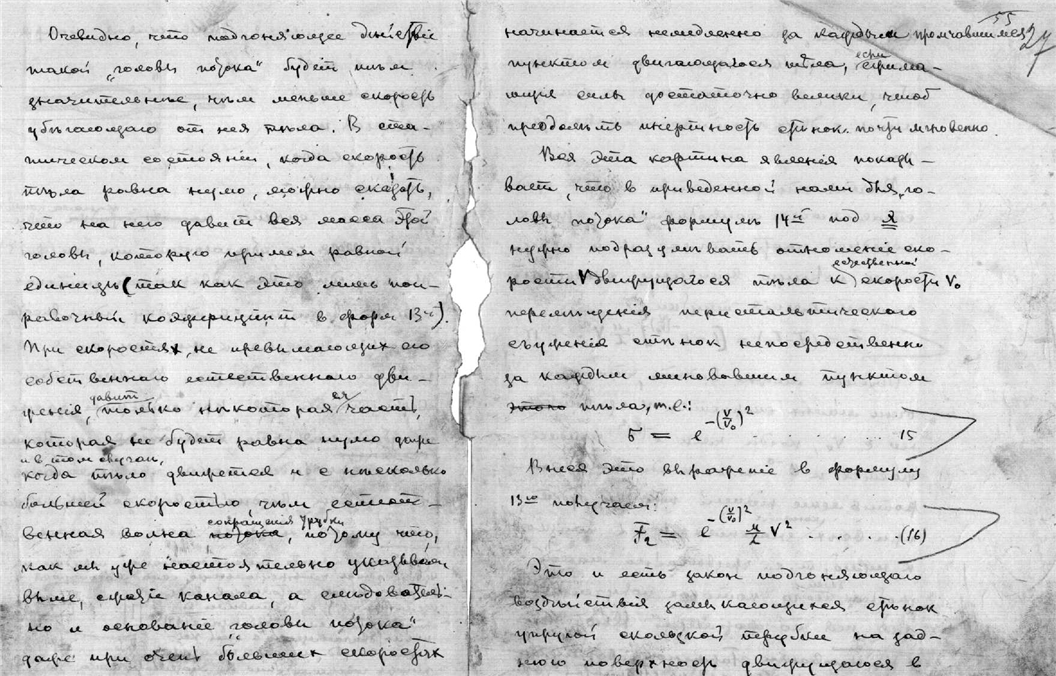 Очевидно, что подгоняющее дѣйствіе
такой „головы потока“ будетъ тѣмъ
значительнѣе, чѣмъ меньше скорость
убѣгающаго отъ нея тѣла. В ста-
тическом состояніи, когда скорость
тѣла равна нулю, можно сказать,
что на него давит вся масса этой
головы, которую примем равной
единицѣ (так как это лишь поп-
равочный коэфициент в форм 13ой).
При скоростях, не превышающих его
собственнаго естественнаго дви-
жения, давит только нѣкоторая ея часть,
которая не будет равна нулю даже
и в том случаѣ,
когда тѣло движется и с нѣсколько
большей скоростью, чѣм естест-
сокращения трубки
венная волна потока, потому что,
как мы уже настоятельно указывали
выше, сжатіе канала, а слѣдователь-
но и основаніе „головы потока“
даже при очень больших скоростях
55
27
начинается немедленно за каждым промчавшимся
пунктом двигающагося тѣла, если сжима-
ющія силы достаточно велики, чтоб
преодолѣть инертность стѣнок почти мгновенно.
Вся эта картина явленія показы-
вает, что в приведенной нами для „го-
ловы потока“ формулѣ 14ой под
нужно подразумѣвать отношеніе ско-
рости V движущагося тѣла к естественной скорости V₀
перемѣщенія перистальтическаго
съуженія стѣнок непосредственно
за каждым миновавшим пунктом
этого тѣла, т.е.:
б = e^-(V/V₀)² . . . . . 15
Внеся это выраженіе в формулу
13ую получаем:
F₂ = e^-(V/V₀)² V² . . . . . (16)
Это и есть закон подгоняющаго
воздѣйствія замыкающихся стѣнок
упругой скользкой трубки на зад-
нюю поверхность движущагося в